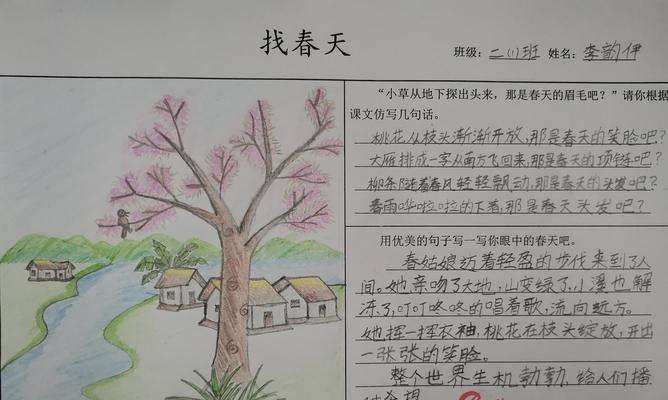 找春天
班级：二(1)班 姓名：李韵伊
“小草从地下探出头来，那是春天的眉毛吧？”请你根据
课文仿写几句话。
桃花从枝头渐渐开放,那是春天的笑脸吧？
大雁排成一字从南方飞回来,那是春天的项链吧？
柳条随着春风轻轻飘动,那是春天的头发吧？
春雨哗啦啦的下着,那是春天头发吧？
用优美的句子写一写你眼中的春天吧。
春姑娘迈着轻盈的步伐来到了人
间。她亲吻了大地,山变绿了,小溪也解
冻了,叮叮咚咚的唱着歌,流向远方。
她挥一挥衣袖,桃花在枝头绽放,开出
一张张的笑脸。
整个世界生机勃勃,给人们播